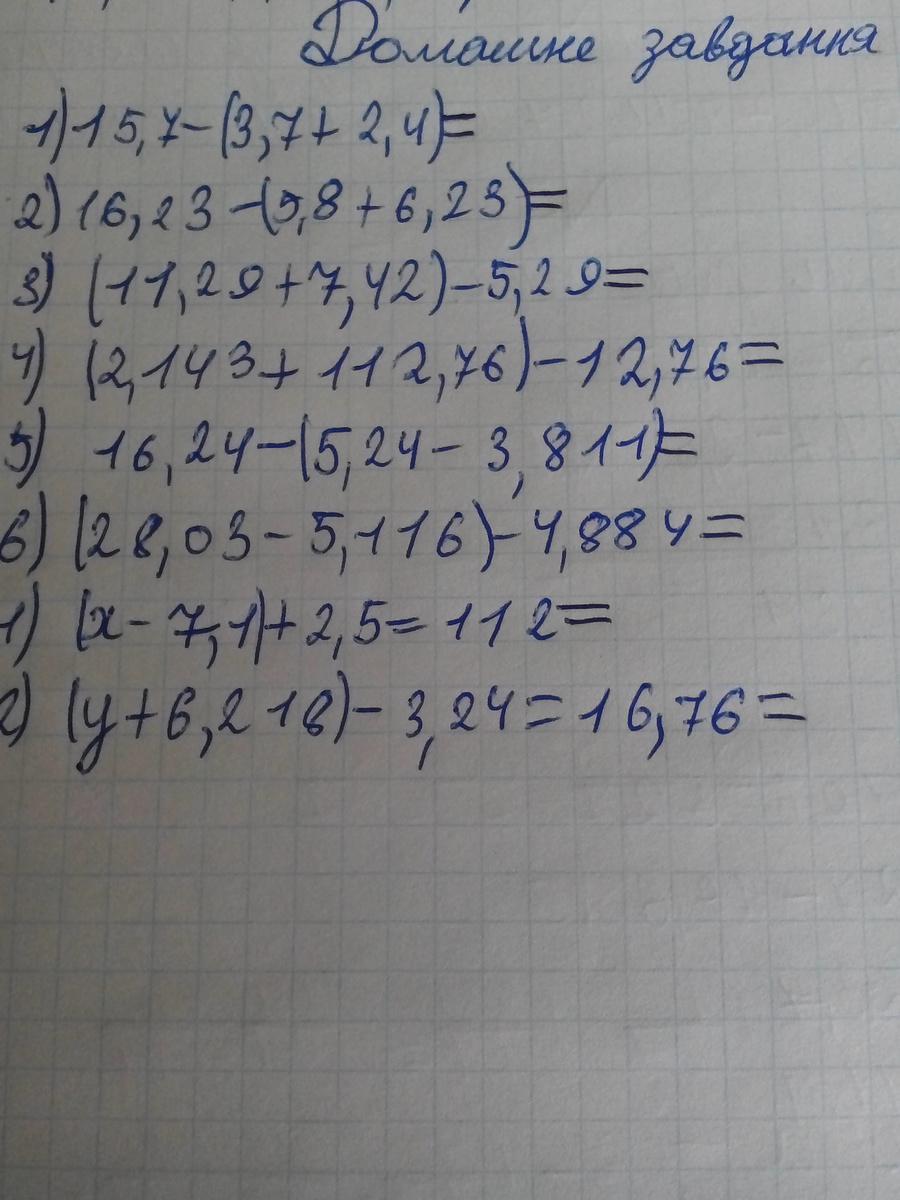 Домашнє завдання
1) 15,7-(3,7+2,4)=
2) 16,23-(5,8+6,23)=
3) (11,29+7,42)-5,29=
4) (2,143+112,76)-12,76=
5) 16,24-(5,24-3,811)=
6) (28,03-5,116)-4,884=
1) (x-7,1)+2,5=112=
2) (y+6,218)-3,24=16,76=